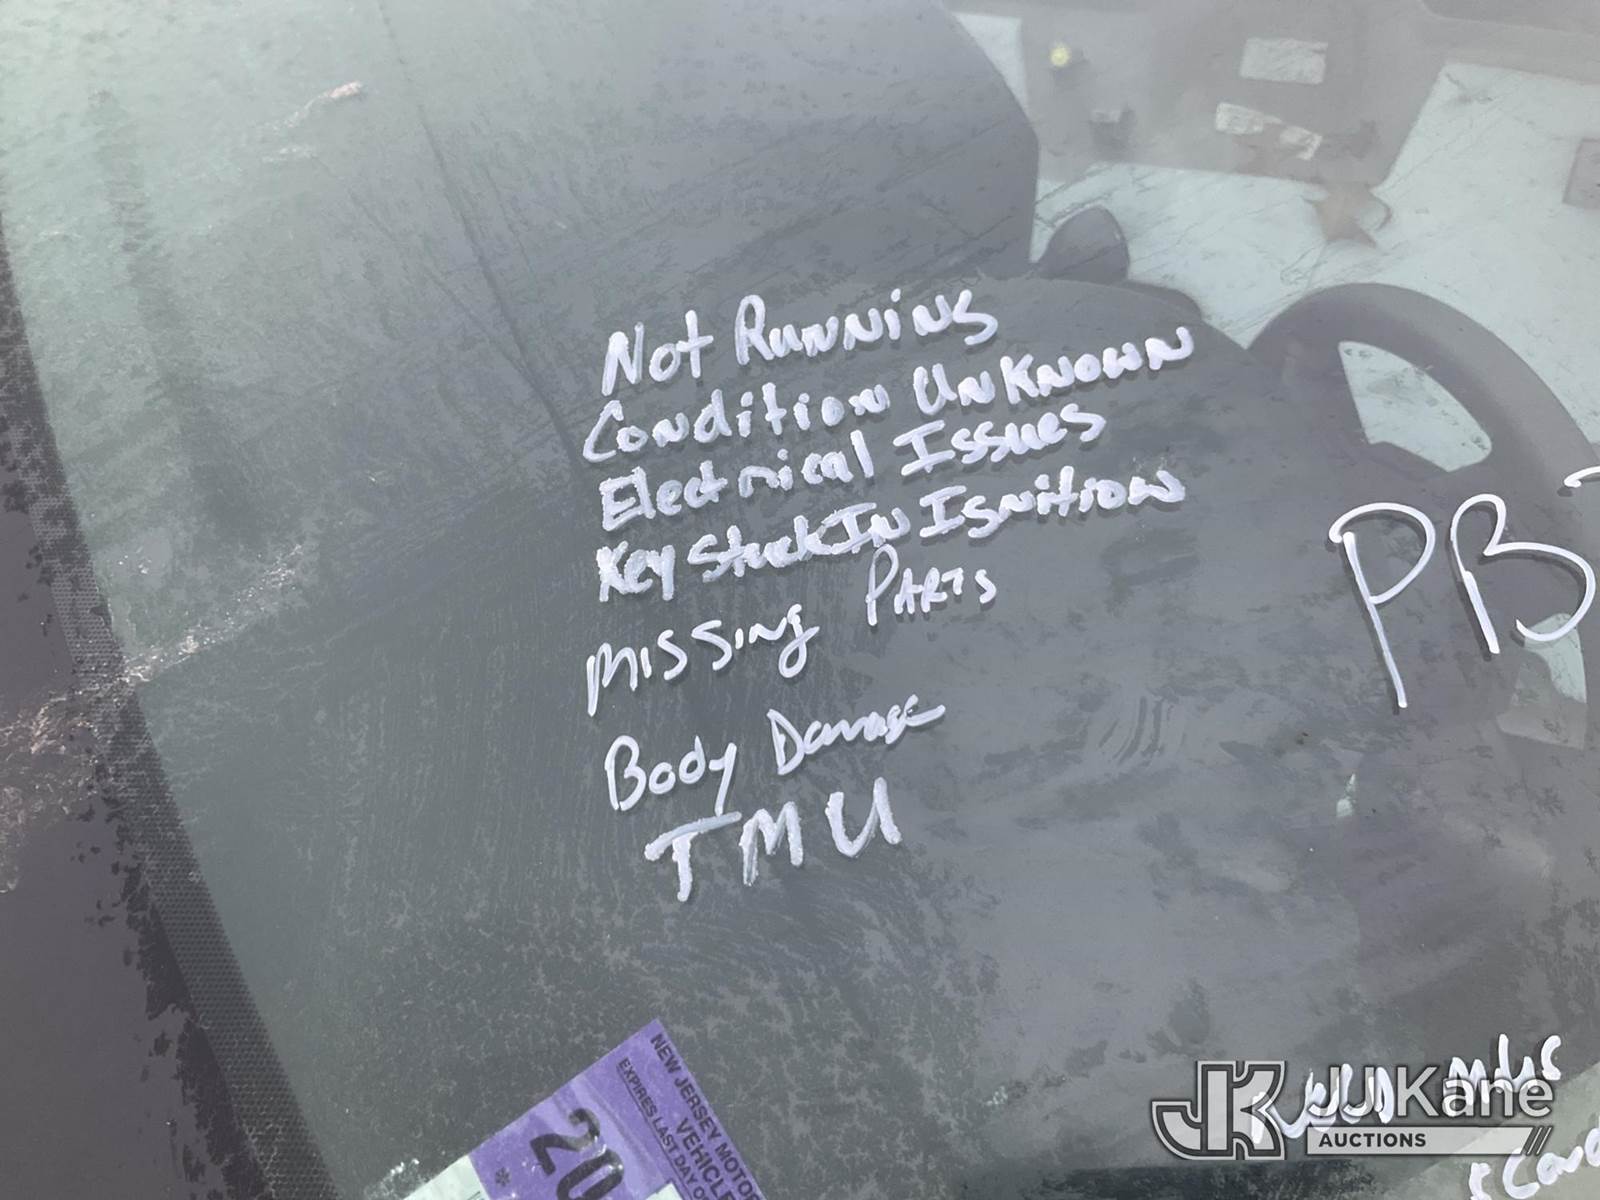 Not Running
Condition UnKnown
Electrical Issues
Key Stuck In Ignition
Missing Parts
Body Damage
TMU
PB
NEW JERSEY MOTOR
VEHICLE
EXPIRES LAST DAY O
20
JJKane
AUCTIONS